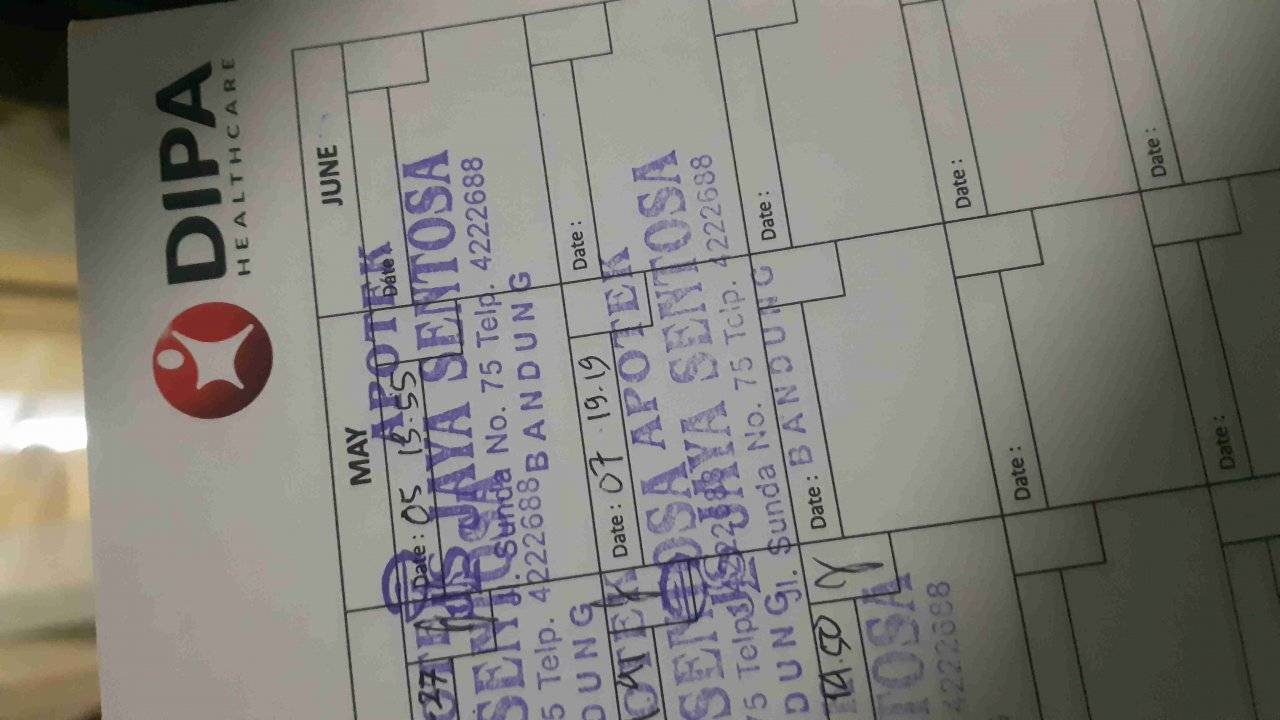 DIPA
HEALTHCARE
MAY
JUNE
Date : 05 13.55
Date :
APOTEK
JAYA SENTOSA
Jl. Sunda No. 75 Telp. 4222688
BANDUNG
Date : 07 19.19
Date :
APOTEK
JAYA SENTOSA
Jl. Sunda No. 75 Telp. 4222688
BANDUNG
Date :
Date :
Date :
Date :
Date :
Date :
37
OTEK
SENTOSA
5 Telp. 4222688
DUNG
OTEK
SENTOSA
75 Telp. 4222688
DUNG
19.50
TOSA
4222688